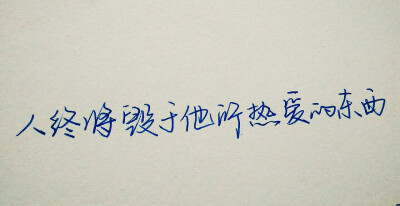 人终将毁于他所热爱的东西